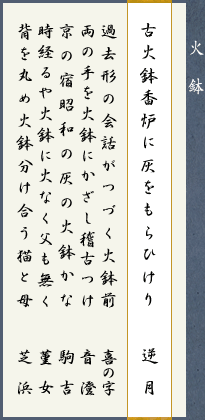 火鉢
古火鉢香炉に灰をもらひけり 逆月
過去形の会話がつづく火鉢前 喜の字
両の手を火鉢にかざし稽古つけ 音澄
京の宿昭和の灰の火鉢かな 駒吉
時経るや火鉢に火なく父も無く 菫女
背を丸め火鉢分け合う猫と母 芝浜